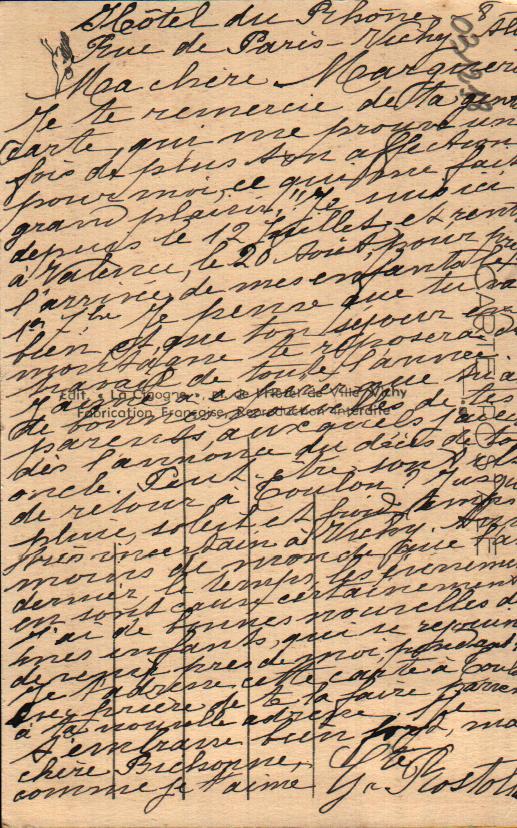 Hôtel du Rhône 8
Rue de Paris - Vichy
Ma chère Marguer
Je te remercie de ta
carte, qui me prouve un
fois de plus ton affection
pour moi, ce qui me fait
grand plaisir. Je suis ici
depuis le 12 Juillet, et rent
à le 20 Août, pour
l'arrivée de mes enfants le
1er 7bre Je pense que tu va
bien et que ton séjour
montagne te reposera
travail de toute l'année
de bonnes de tes
parents, auxquels j'ai
dès l'annonce du décès de to
oncle. Peut-être sont-ils
de retour à Toulon? Jusqu
pluie, soleil et froid, temps
très incertain à Vichy.
moins de monde que l'a
dernier, le temps, les évènemen
en sont cause certainement
J'ai de bonnes nouvelles d
mes enfants, qui se réjouis
de venir près de moi pendant
Je t'adresse cette carte à Toul
avec prière de te la faire parve
à ta nouvelle adresse. Je
t'embrasse bien fort, ma
chère Bichonne,
comme je t'aime.
CARTE POSTALE
Edit. « La Cigogne », Pl. de l'Hôtel de Ville, Vichy
Fabrication Française, Reproduction Interdite